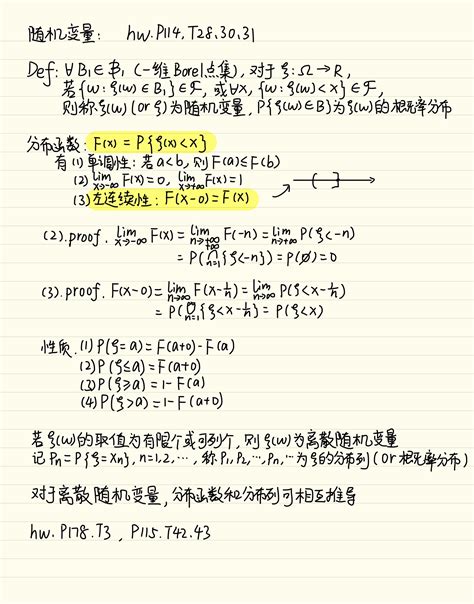 随机变量: hw.P114,T28.30.31
Def: ∀B₁∈ℬ₁ (一维Borel点集), 对于ξ:Ω→R,
若{ω:ξ(ω)∈B₁}∈ℱ, 或∀x, {ω:ξ(ω)<x}∈ℱ,
则称ξ(ω)(or ξ)为随机变量, P{ξ(ω)∈B}为ξ(ω)的概率分布
分布函数: F(x)=P{ξ(ω)<x}
有(1)单调性: 若a<b, 则F(a)≤F(b)
(2) lim_{x→-∞} F(x)=0, lim_{x→+∞} F(x)=1
(3) 左连续性: F(x-0)=F(x)
(2).proof. lim_{x→-∞} F(x)=lim_{n→+∞} F(-n)=lim_{n→+∞} P(ξ<-n)
=P(⋂_{n=1}^{∞}{ξ<-n})=P(∅)=0
(3).proof. F(x-0)=lim_{n→∞} F(x-1/n)=lim_{n→∞} P(ξ<x-1/n)
=P(⋃_{n=1}^{∞}{ξ<x-1/n}=P(ξ<x)
性质. (1) P(ξ=a)=F(a+0)-F(a)
(2) P(ξ≤a)=F(a+0)
(3) P(ξ≥a)=1-F(a)
(4) P(ξ>a)=1-F(a+0)
若ξ(ω)的取值为有限个或可列个, 则ξ(ω)为离散随机变量
记Pn=P{ξ=Xn}, n=1,2,⋯, 称P₁,P₂,⋯,Pn,⋯为ξ的分布列(or概率分布)
对于离散随机变量, 分布函数和分布列可相互推导
hw. P178.T3, P115.T42.43